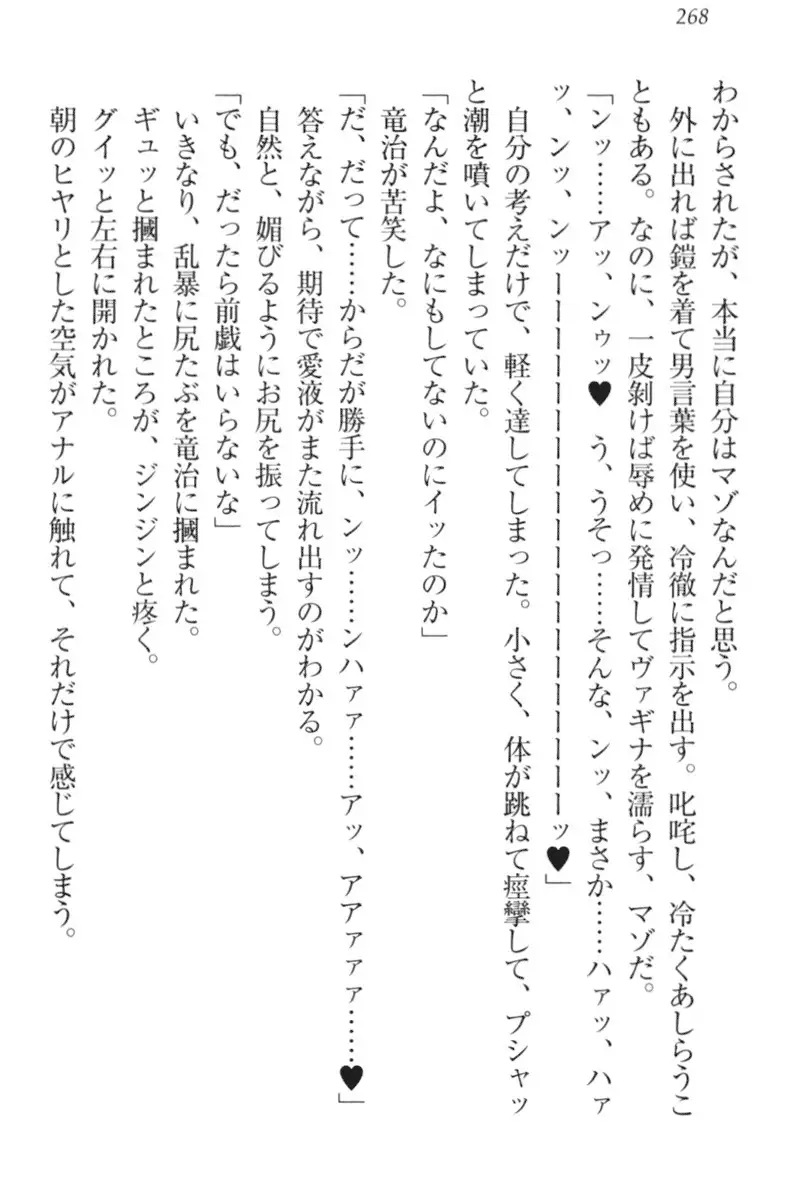 268
わからされたが、本当に自分はマゾなんだと思う。
外に出れば鎧を着て男言葉を使い、冷徹に指示を出す。叱咤し、冷たくあしらうこ
ともある。なのに、一皮剝けば辱めに発情してヴァギナを濡らす、マゾだ。
「ンッ……アッ、ンゥッ♥　う、うそっ……そんな、ンッ、まさか……ハァッ、ハァ
ッ、ンッ、ンッーーーーーーーーーーーーーーーーーッ♥」
自分の考えだけで、軽く達してしまった。小さく、体が跳ねて痙攣して、プシャッ
と潮を噴いてしまっていた。
「なんだよ、なにもしてないのにイッたのか」
竜治が苦笑した。
「だ、だって……からだが勝手に、ンッ……ンハァァ……アッ、アアァァァ……♥」
答えながら、期待で愛液がまた流れ出すのがわかる。
自然と、媚びるようにお尻を振ってしまう。
「でも、だったら前戯はいらないな」
いきなり、乱暴に尻たぶを竜治に摑まれた。
ギュッと摑まれたところが、ジンジンと疼く。
グイッと左右に開かれた。
朝のヒヤリとした空気がアナルに触れて、それだけで感じてしまう。